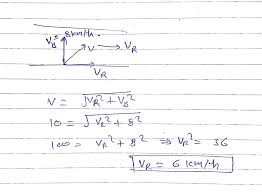 V_B = 8 km/h.
V → V_R
V_R
V = √(V_R² + V_B²)
10 = √(V_R² + 8²)
100 = V_R² + 8² ⇒ V_R² = 36
V_R = 6 km/h